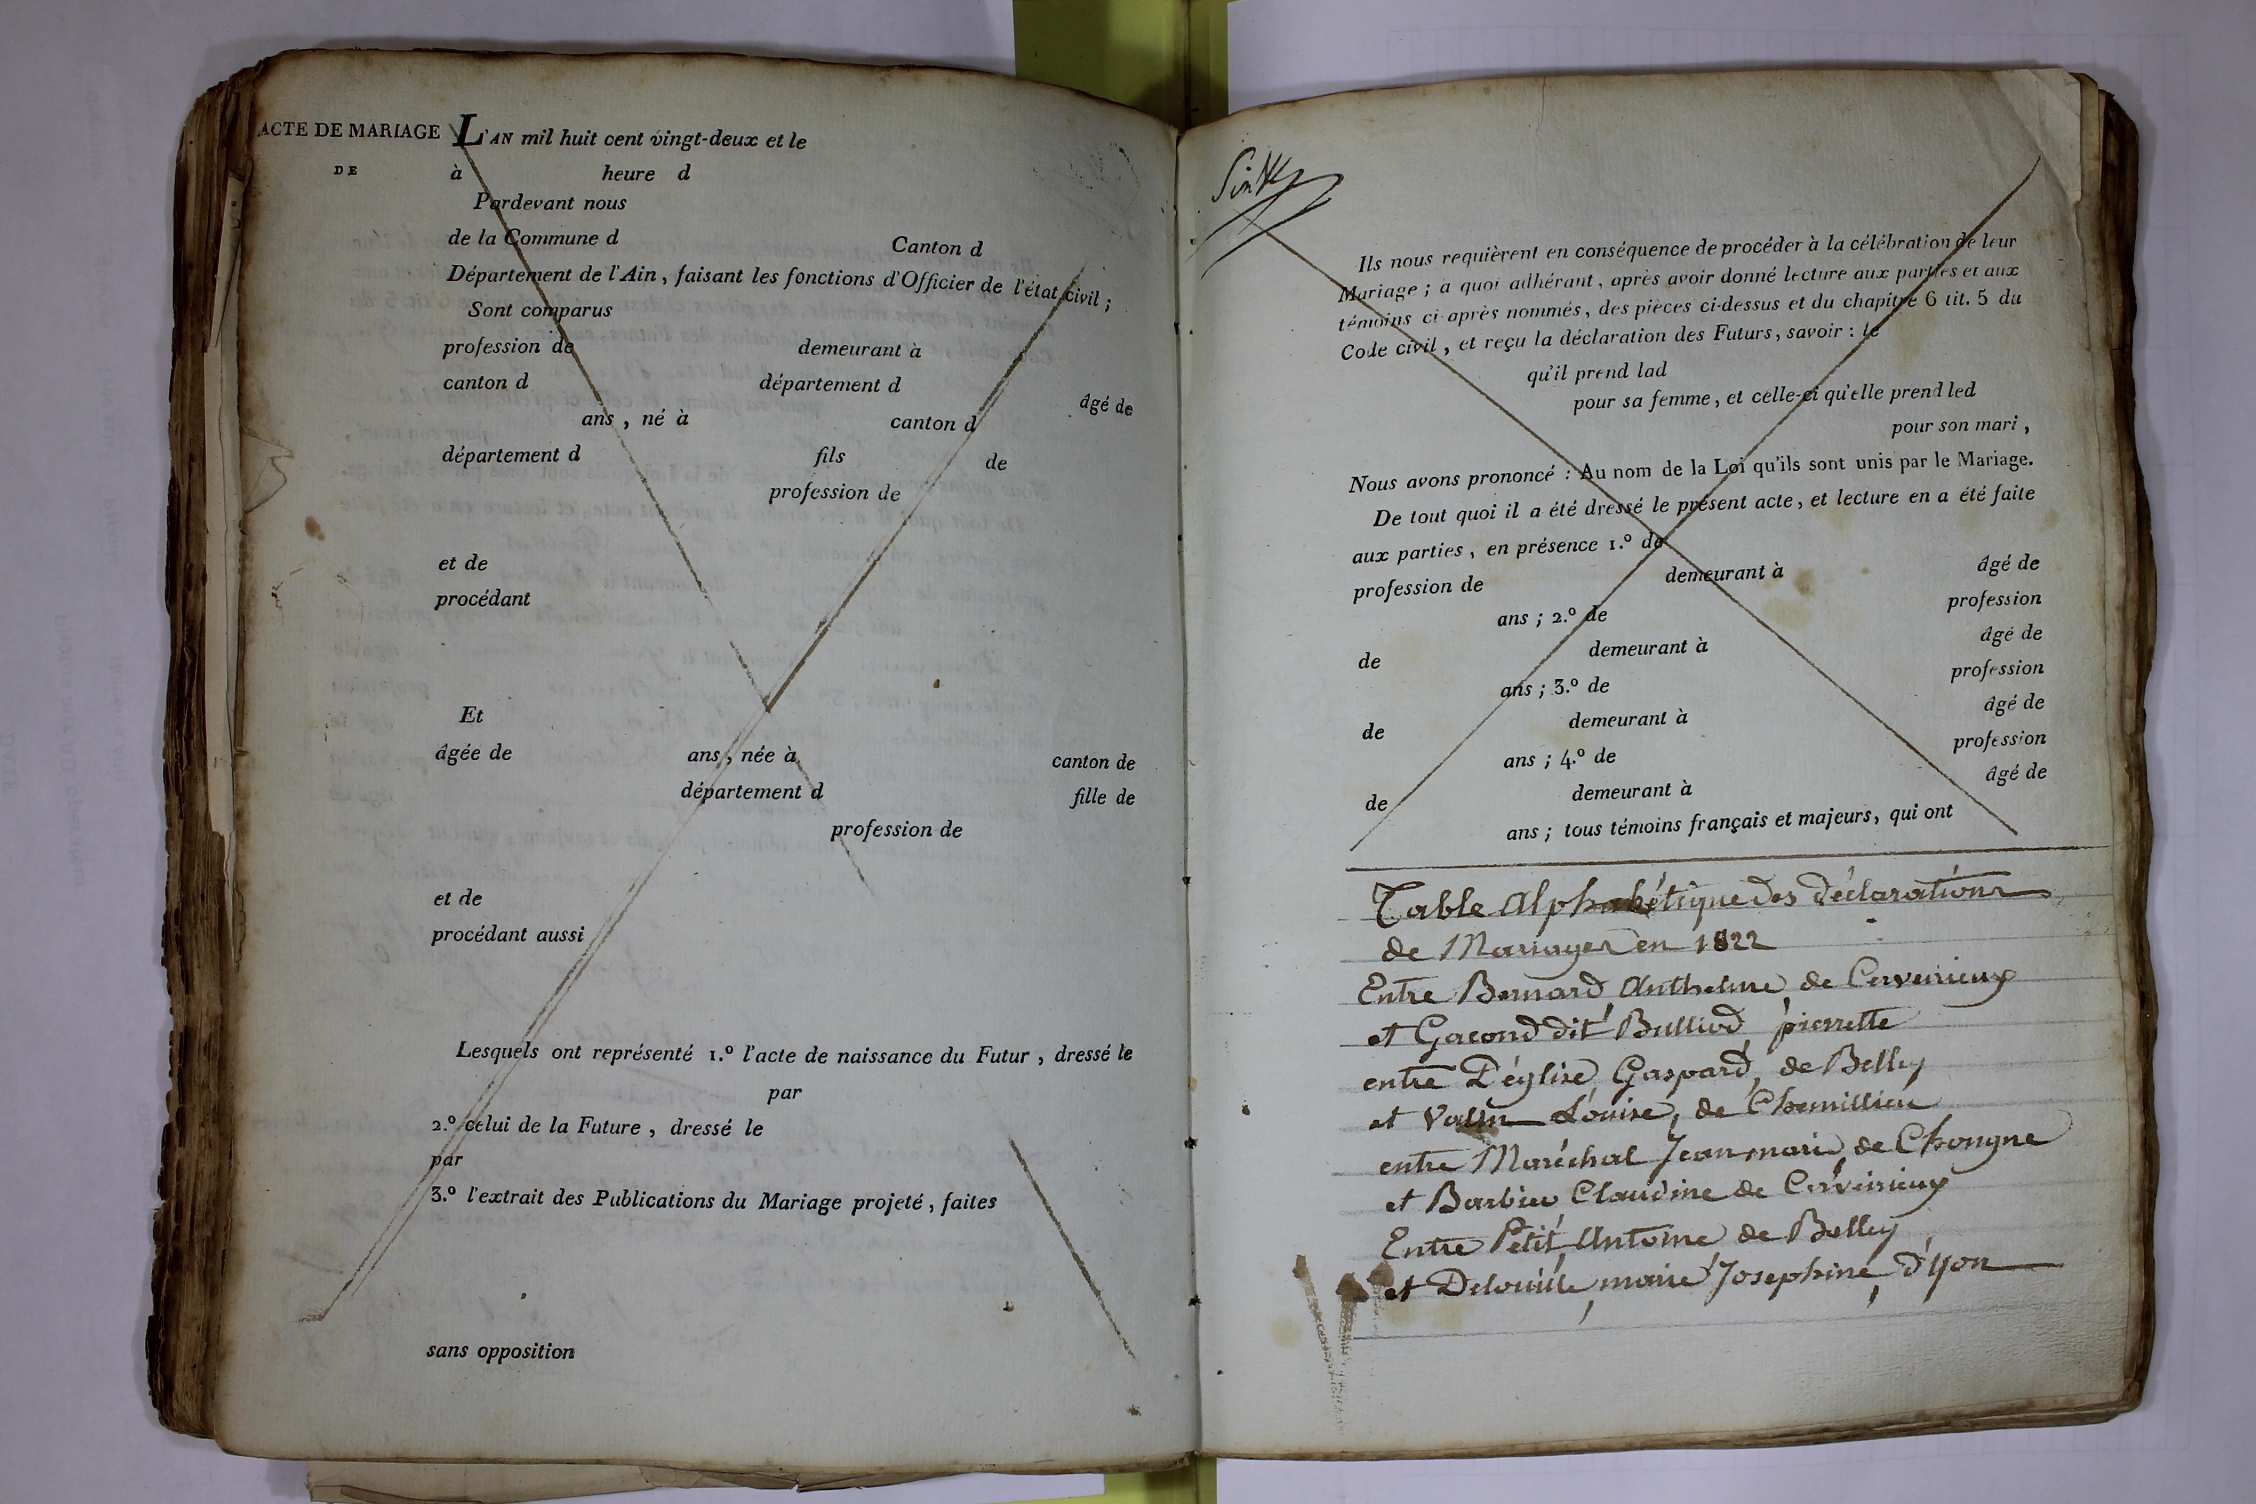 ACTE DE MARIAGE
DE
L'AN mil huit cent vingt-deux et le
à heure d
Pardevant nous
de la Commune d Canton d
Département de l'Ain, faisant les fonctions d'Officier de l'état civil ;
Sont comparus
profession de demeurant à
canton d département d âgé de
ans, né à canton d
département d fils de
profession de
et de
procédant
Et
âgée de ans, née à canton de
département d fille de
profession de
et de
procédant aussi
Lesquels ont représenté 1.º l'acte de naissance du Futur, dressé le
par
2.º celui de la Future, dressé le
par
3.º l'extrait des Publications du Mariage projeté, faites
sans opposition
Ils nous requièrent en conséquence de procéder à la célébration de leur
Mariage ; à quoi adhérant, après avoir donné lecture aux parties et aux
témoins ci-après nommés, des pièces ci-dessus et du chapitre 6 tit. 5 du
Code civil, et reçu la déclaration des Futurs, savoir : le
qu'il prend lad
pour sa femme, et celle-ci qu'elle prend led
pour son mari,
Nous avons prononcé : Au nom de la Loi qu'ils sont unis par le Mariage.
De tout quoi il a été dressé le présent acte, et lecture en a été faite
aux parties, en présence 1.º de
profession de demeurant à âgé de
ans ; 2.º de profession
de demeurant à âgé de
ans ; 3.º de profession
de demeurant à âgé de
ans ; 4.º de profession
de demeurant à âgé de
ans ; tous témoins français et majeurs, qui ont
Table Alphabétique des déclarations
de Mariages en 1822
Entre Bernard Anthelme de Cerveirieux
et Gacond dit Bulliod pierrette
entre Déglise Gaspard, de Belley
et Vallin Louise, de Chemillieu
entre Maréchal Jean marie de Chongne
et Barbier Claudine de Cerveirieux
Entre Petit Antoine de Belley
et marie Josephine, d'yon